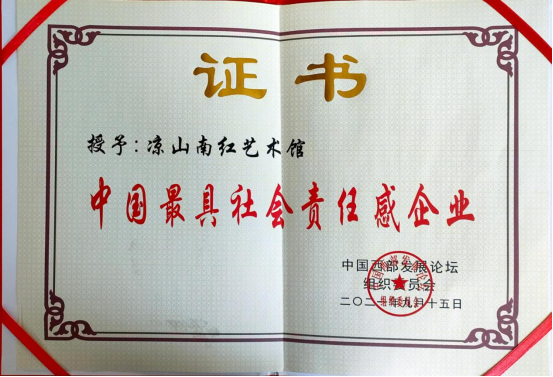 证书
授予:凉山南红艺术馆
中国最具社会责任感企业
中国西部发展论坛
组织委员会
二〇二一年九月十五日